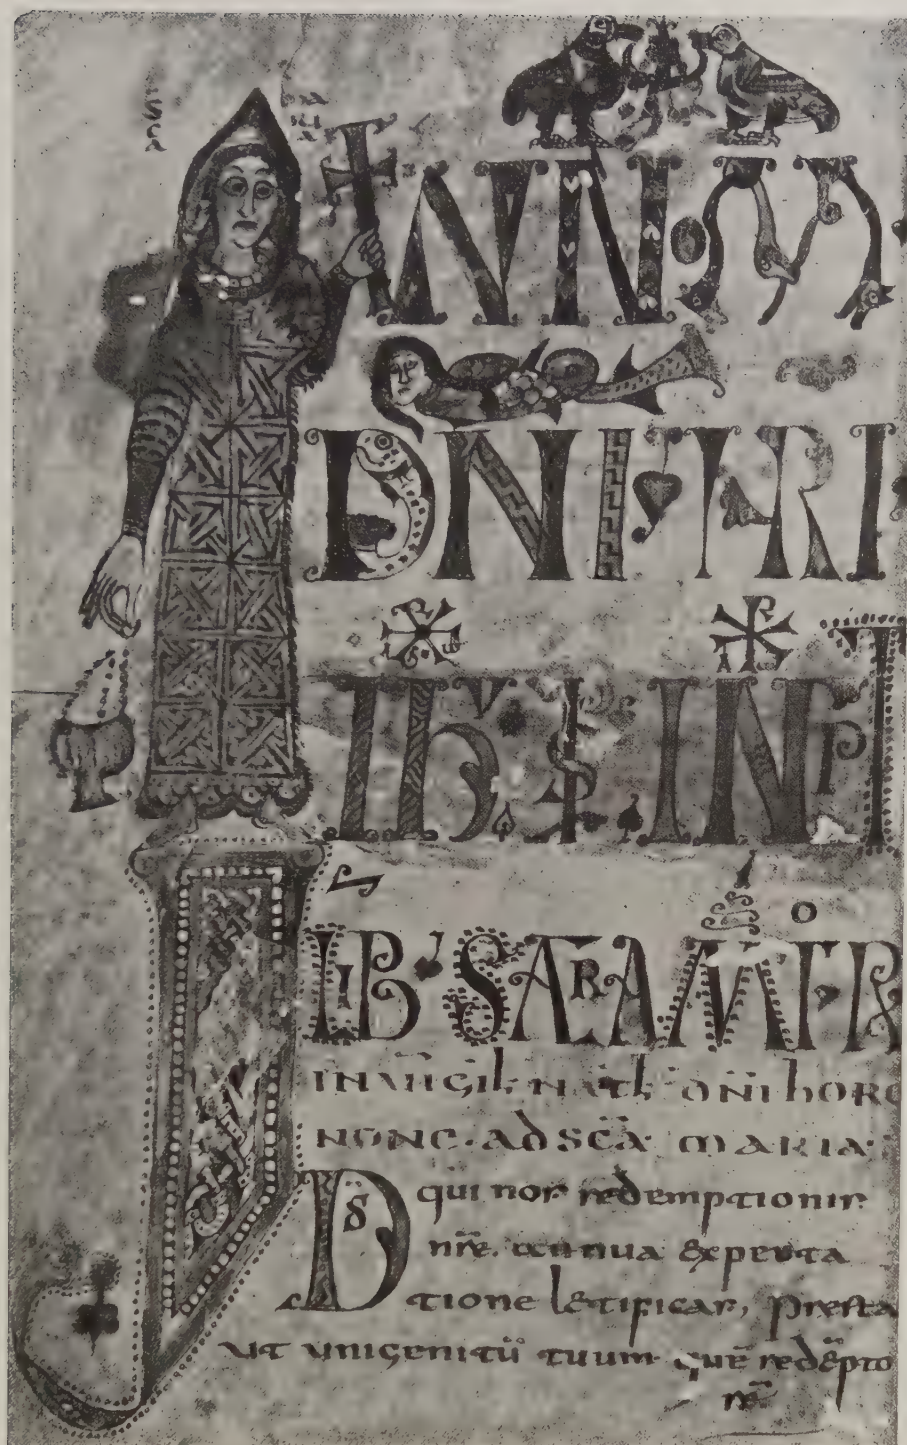 SCA MARIA
INNOM
DNI NRI
LIB SACRAM
IN UIGIL NATL DNI hORA
NONA · AD SCA MARIA
DS qui nos redemptionis
nr̄e. annua expecta
tione letificas, presta
ut unigenitū tuum quē redēpto
rē